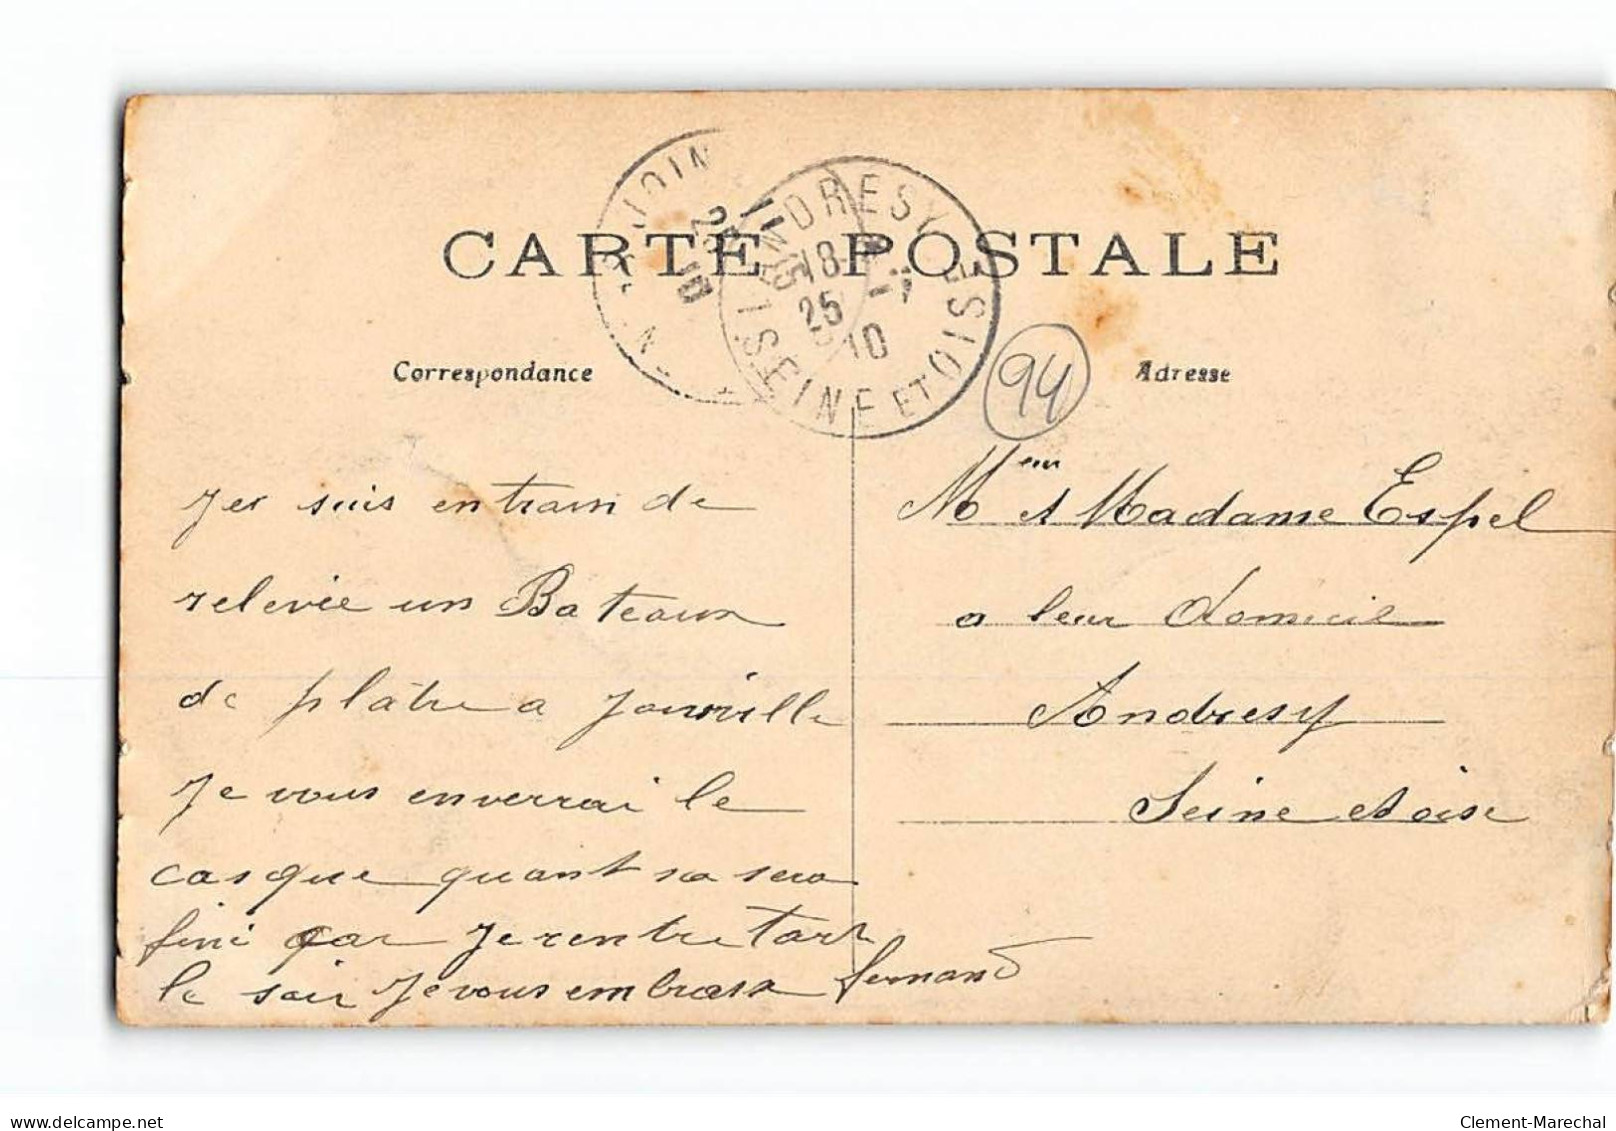 CARTE POSTALE
ANDRESY
SEINE ET OISE
18
25 -7
10
Correspondance
Adresse
94
Jes suis en train de
relevée un Bateaux
de plâtre a Joinville
Je vous enverrai le
casque quant sa sera
fini car Je rentre tart
le soir Je vous embrasse fernand
Meur et Madame Espel
a leur domicil
Andresy
Seine et oise
Clement-Marechal